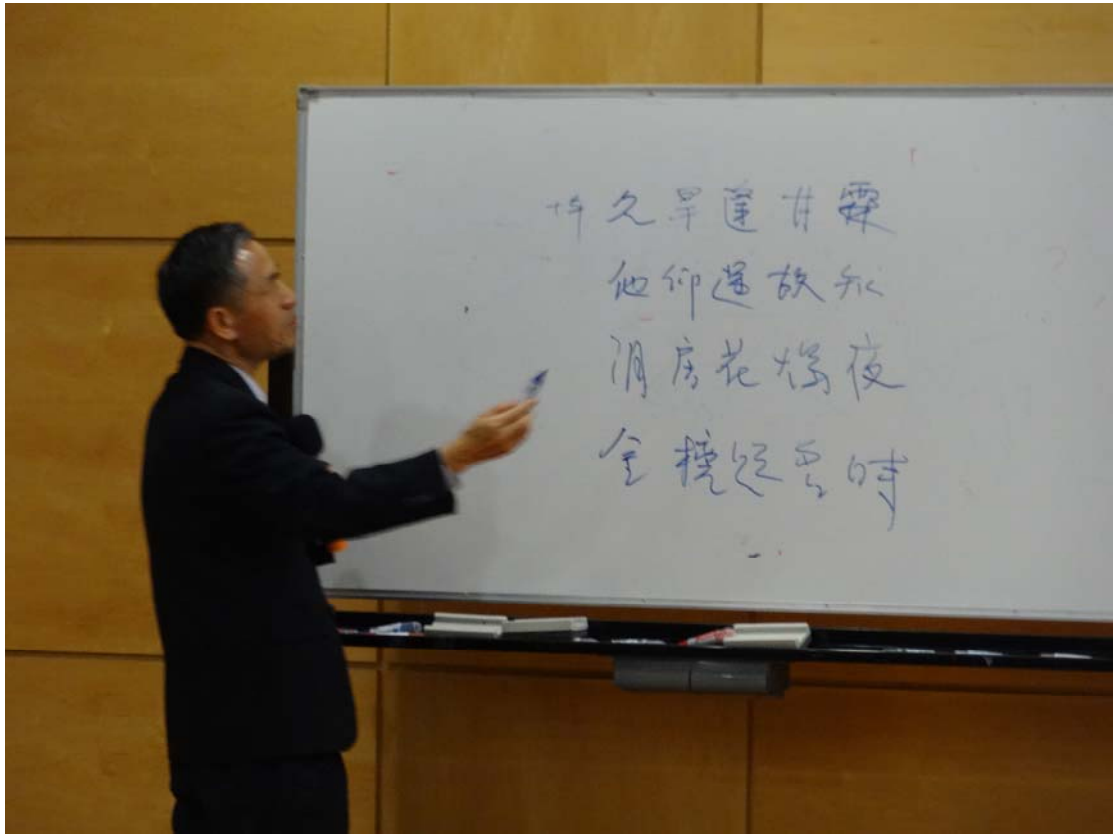 十年久旱逢甘霖
他鄉遇故知
洞房花燭夜
金榜題名時